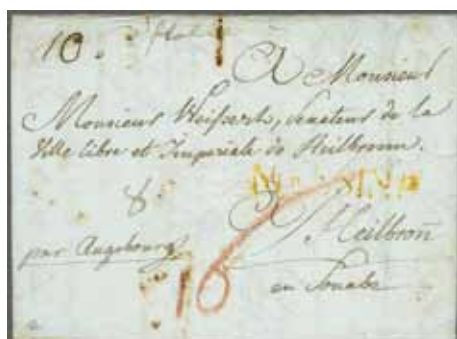 10.
A Monsieur
Monsieur Weissert, Senateur de la
Ville libre et Imperiale de Heilbronn.
8.
à Heilbroñ
par Augsbourg
16
en Souabe